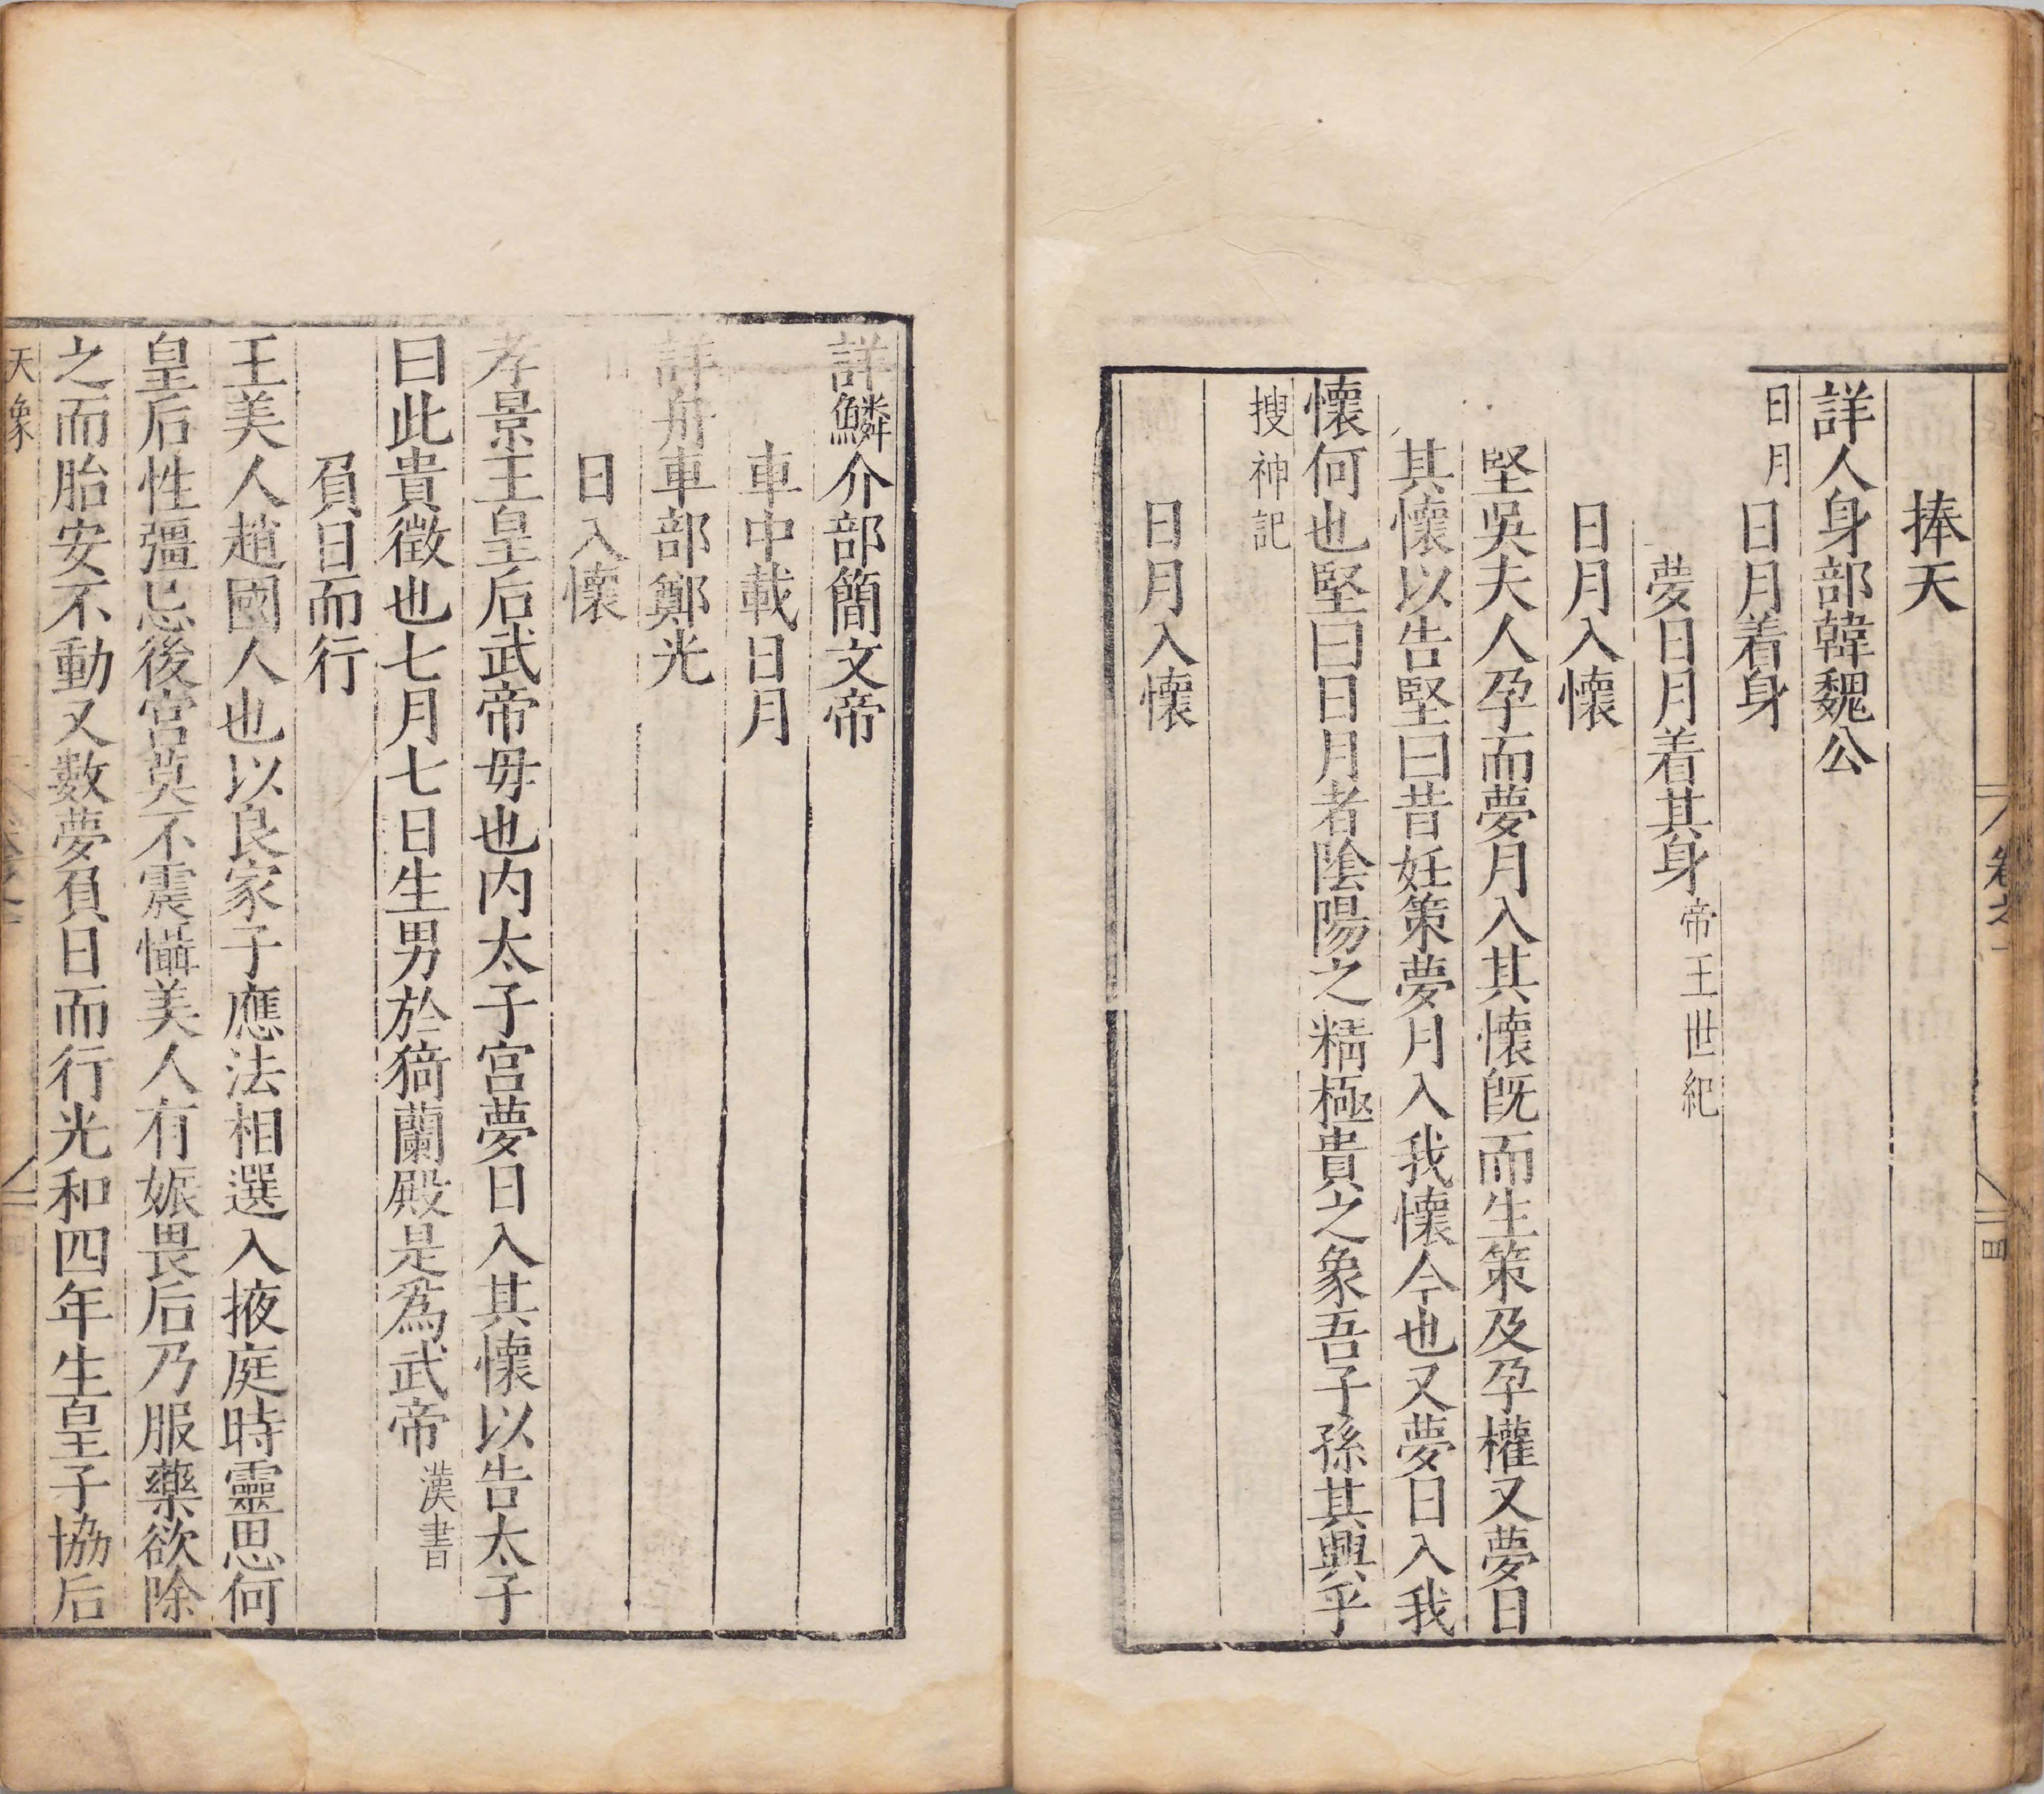 卷之一
四
捧天
詳人身部韓魏公
日月
日月着身
夢日月着其身帝王世紀
日月入懷
堅吳夫人孕而夢月入其懷旣而生策及孕權又夢日
其懷以告堅曰昔妊策夢月入我懷今也又夢日入我
懷何也堅曰日月者陰陽之精極貴之象吾子孫其興乎
搜神記
日月入懷
詳鱗介部簡文帝
車中載日月
詳舟車部鄭光
日入懷
孝景王皇后武帝毋也內太子宮夢日入其懷以告太子
曰此貴徵也七月七日生男於猗蘭殿是爲武帝漢書
負日而行
王美人趙國人也以良家子應法相選入掖庭時靈思何
皇后性彊忌後宮莫不震懾美人有娠畏后乃服藥欲除
之而胎安不動又数夢負日而行光和四年生皇子協后
天象